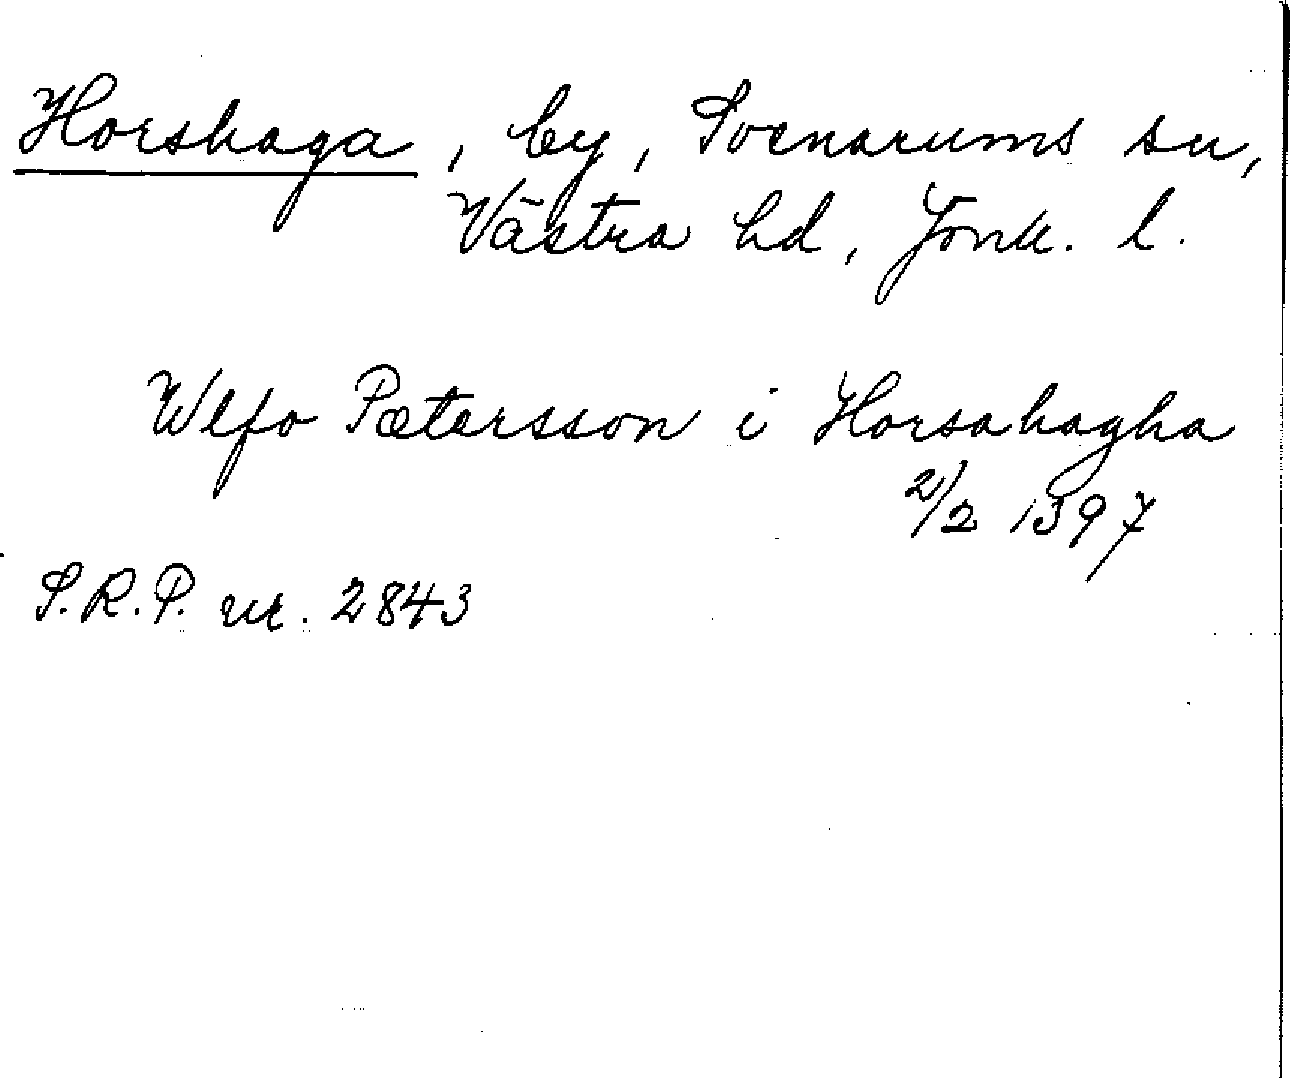 Horshaga, by, Svenarums sn,
Västra hd, Jönk. l.
Wlfo Pætersson i Horsahagha
2/2 1397
S.R.P. nr. 2843